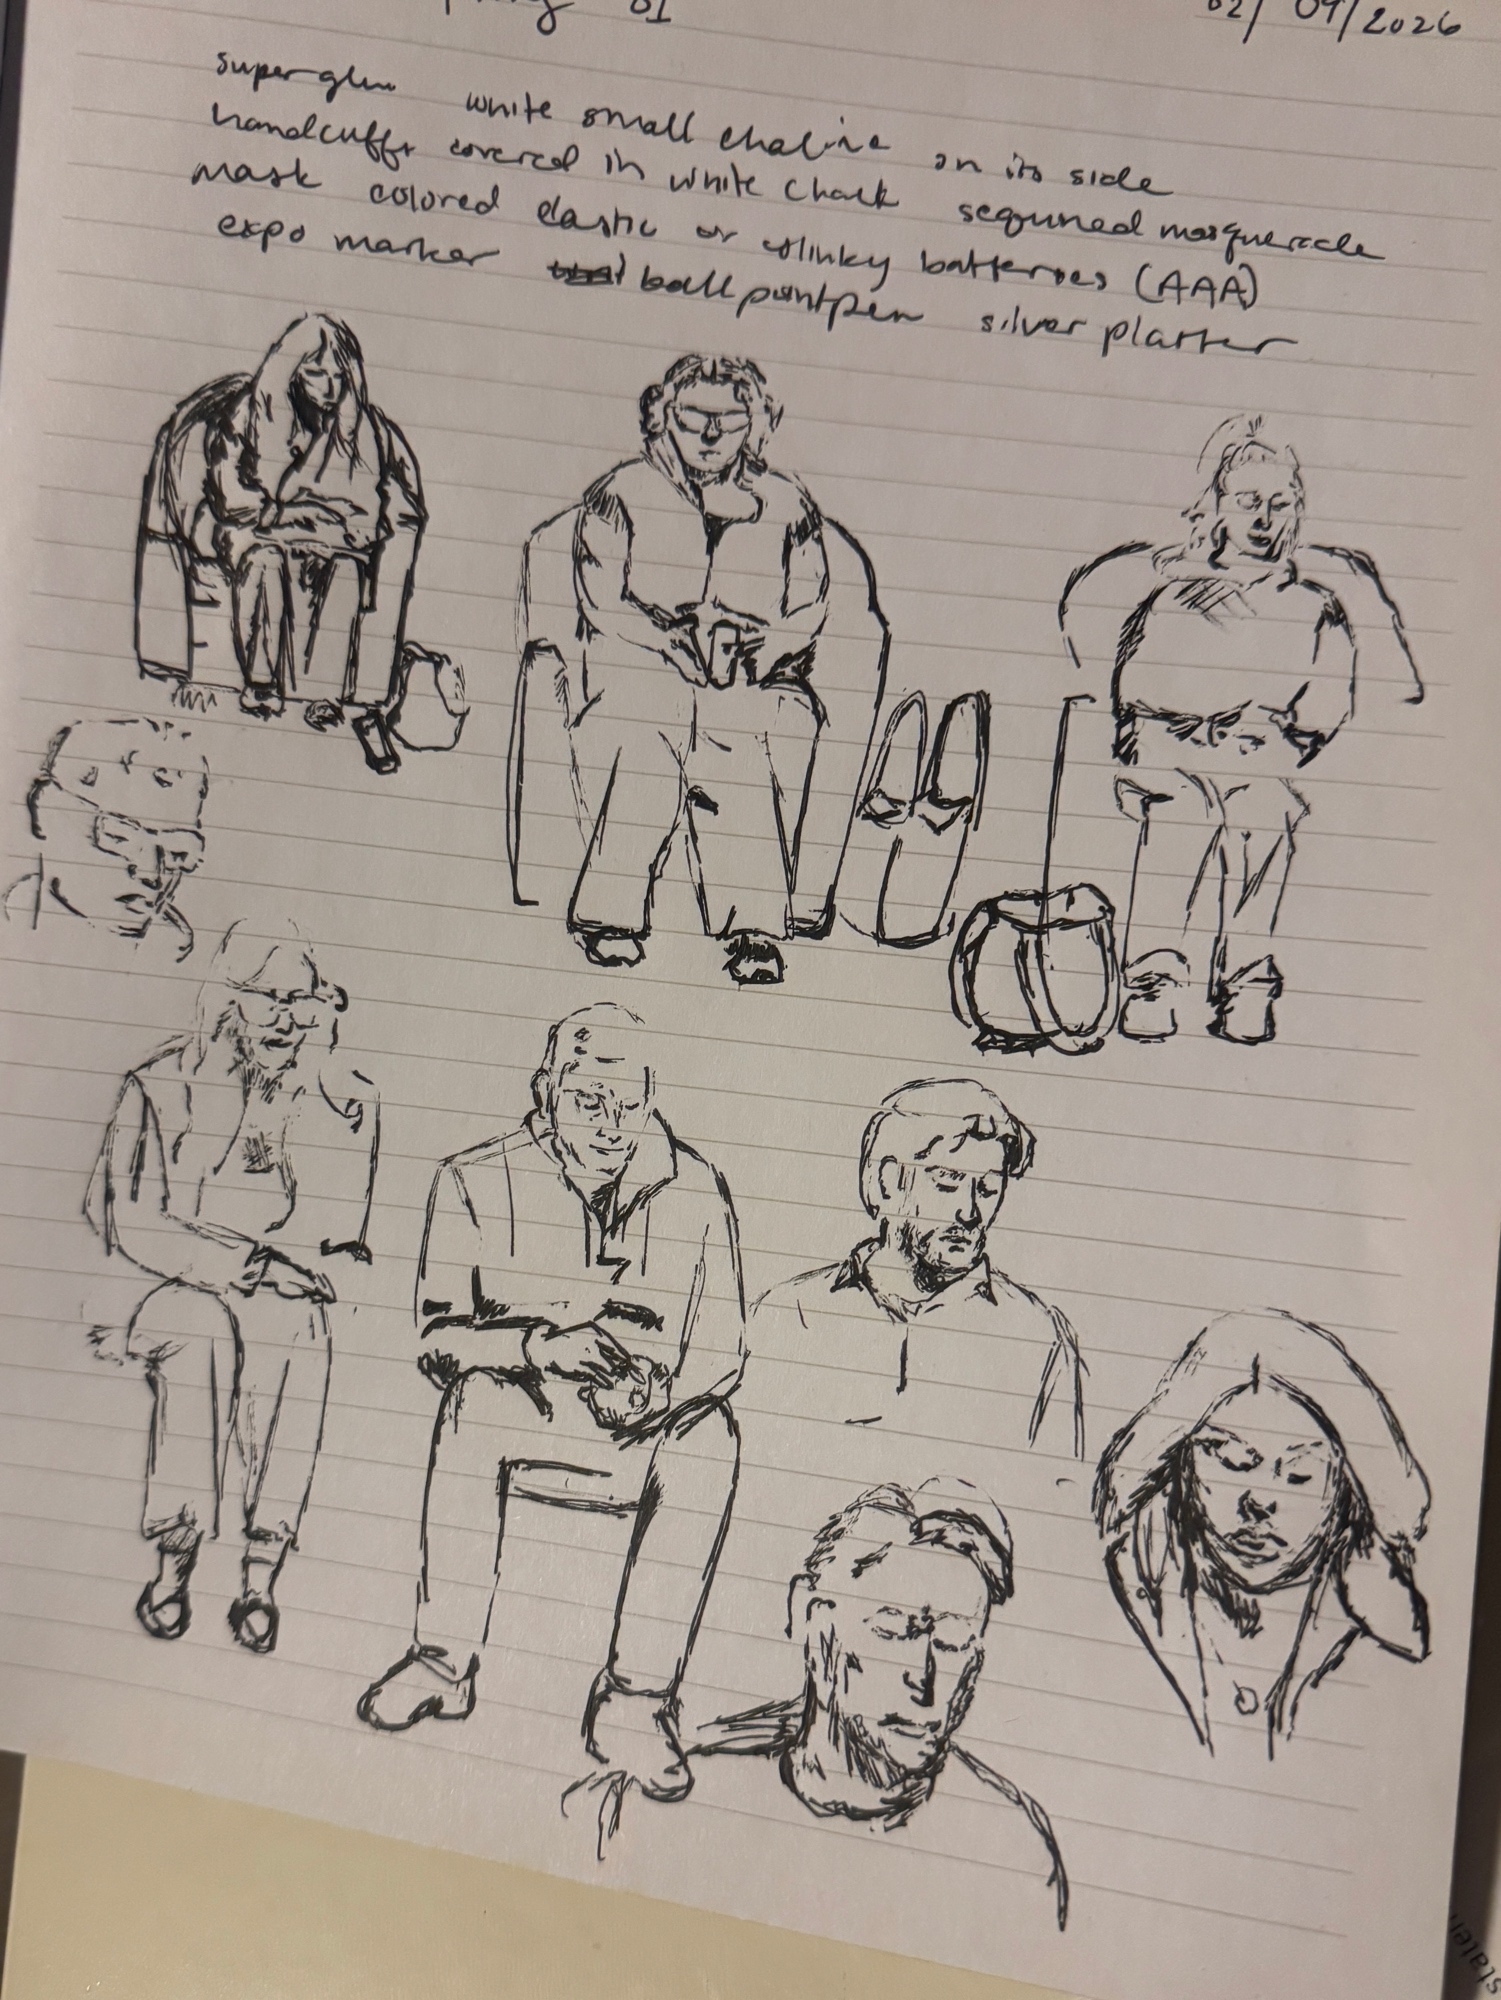 01 02/09/2026
superglue white small chalice on its side
handcuffs covered in white chalk sequined masquerade
mask colored elastic or slinky batteries (AAA)
expo marker ballpoint pen silver platter